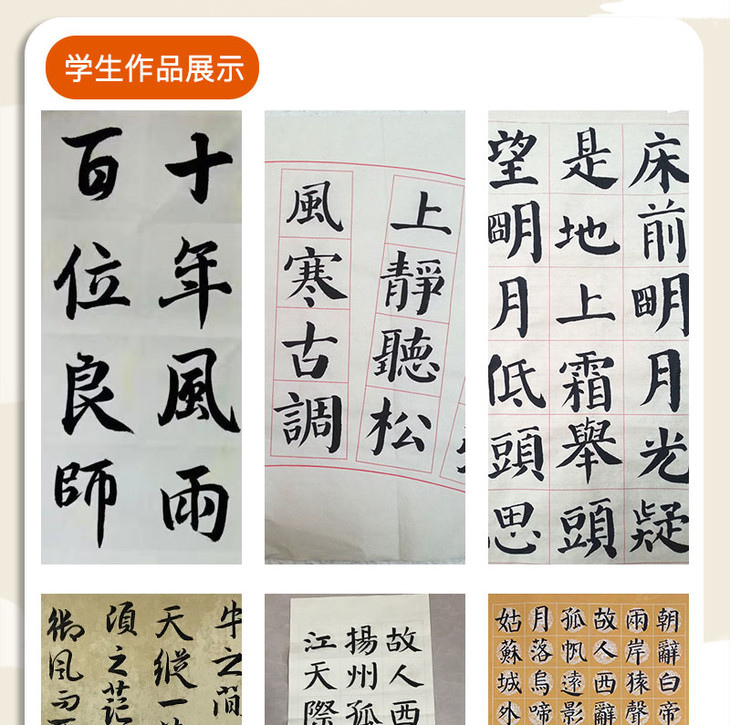 学生作品展示
十年風雨
百位良師
上靜聽松
風寒古調
床前朙月光疑
是地上霜舉頭
望朙月低頭思
牛之間
天縱一
頃之茫
御風而
故人西
揚州孤
江天際
朝辭白帝
兩岸猿聲
故人西辭
孤帆遠影
月落烏啼
姑蘇城外